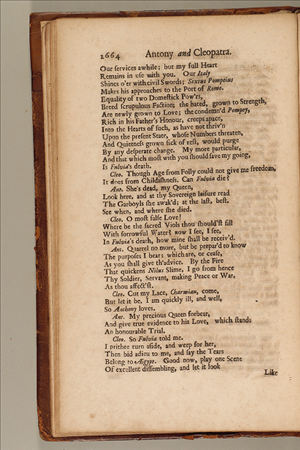 2664 Antony and Cleopatra.
Our services awhile; but my full Heart
Remains in use with you. Our Italy
Shines o'er with civil Swords; Sextus Pompeius
Makes his approaches to the Port of Rome.
Equality of two Domestick Pow'rs,
Breed scrupulous Faction; the hated, grown to Strength,
Are newly grown to Love; the condemn'd Pompey,
Rich in his Father's Honour, creeps apace,
Into the Hearts of such, as have not thriv'n
Upon the present State, whose Numbers threaten,
And Quietness grown sick of rest, would purge
By any desperate change. My more particular,
And that which most with you should save my going,
Is Fulvia's death.
Cleo. Though Age from Folly could not give me freedom,
It does from Childishness. Can Fulvia die?
Ant. She's dead, my Queen,
Look here, and at thy Sovereign leisure read
The Garboyls she awak'd; at the last, best.
See when, and where she died.
Cleo. O most false Love!
Where be the sacred Viols thou should'st fill
With sorrowful Water? now I see, I see,
In Fulvia's death, how mine shall be receiv'd.
Ant. Quarrel no more, but be prepar'd to know
The purposes I bear; which are, or cease,
As you shall give th'advice. By the Fire
That quickens Nilus Slime, I go from hence
Thy Soldier, Servant, making Peace or War,
As thou affect'st.
Cleo. Cut my Lace, Charmian, come,
But let it be, I am quickly ill, and well,
So Anthony loves.
Ant. My precious Queen forbear,
And give true evidence to his Love, which stands
An honourable Trial.
Cleo. So Fulvia told me.
I prithee turn aside, and weep for her,
Then bid adieu to me, and say the Tears
Belong to Ægypt. Good now, play one Scene
Of excellent dissembling, and let it look
Like